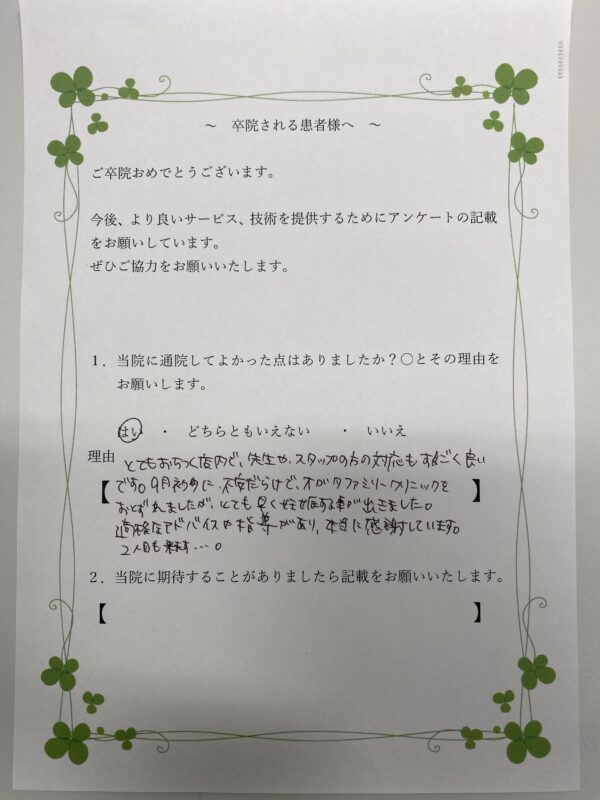 ～ 卒院される患者様へ ～
ご卒院おめでとうございます。
今後、より良いサービス、技術を提供するためにアンケートの記載
をお願いしています。
ぜひご協力をお願いいたします。
1．当院に通院してよかった点はありましたか？〇とその理由を
お願いします。
はい ・ どちらともいえない ・ いいえ
理由 とてもおちつく店内で、先生や、スタッフの方の対応もすごく良い
【です。9月初めに、不安だらけで、オガタファミリークリニックを】
おとずれましたが、とても早く妊娠する事が出きました。
適格なアドバイスや指導があり、本当に感謝しています。
2人目も来ます…。
2．当院に期待することがありましたら記載をお願いいたします。
【 】